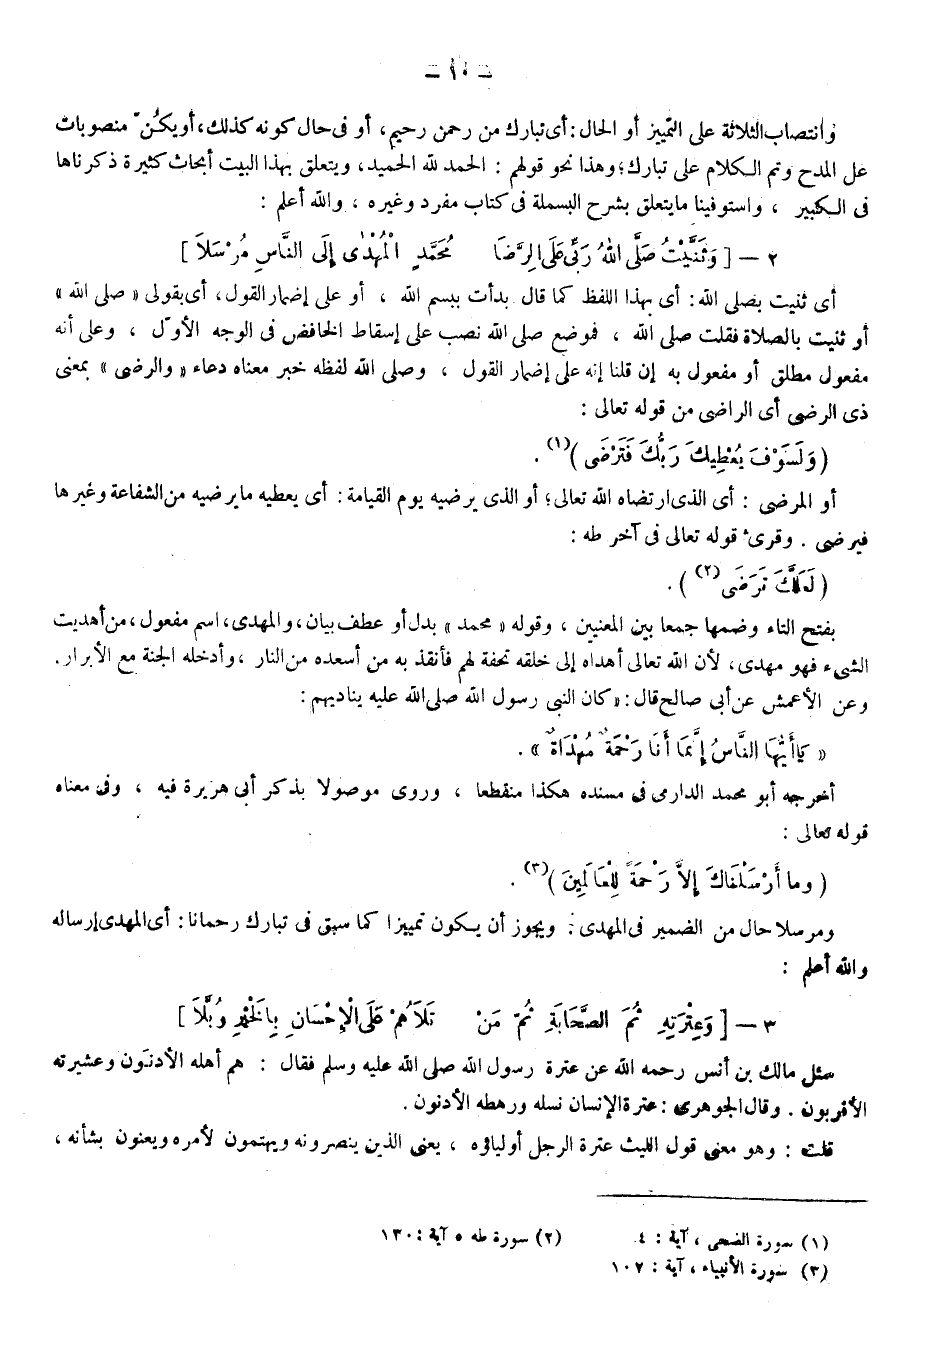 – ١٠ –
وانتصاب الثلاثة على التمييز أو الحال: أى تبارك من رحمن رحيم، أو فى حال كونه كذلك، أو يكنّ منصوبات
على المدح وتم الكلام على تبارك؛ وهذا نحو قولهم : الحمد لله الحميد، ويتعلق بهذا البيت أبحاث كثيرة ذكرناها
فى الكبير ، واستوفينا ما يتعلق بشرح البسملة فى كتاب مفرد وغيره ، والله أعلم :
٢ – [ وَثَنَّيْتُ صَلَّى اللهُ رَبِّى عَلَى الرِّضَا مُحَمَّدٍ الْمُهْدٰى إِلَى النَّاسِ مُرْسَلاَ ]
أى ثنيت بصلى الله: أى بهذا اللفظ كما قال بدأت ببسم الله ، أو على إضمار القول، أى بقولى « صلى الله »
أو ثنيت بالصلاة فقلت صلى الله ، فموضع صلى الله نصب على إسقاط الخافض فى الوجه الأوّل ، وعلى أنه
مفعول مطلق أو مفعول به إن قلنا إنه على إضمار القول ، وصلى الله لفظه خبر معناه دعاء « والرضى » بمعنى
ذى الرضى أى الراضى من قوله تعالى :
( وَلَسَوْفَ يُعْطِيكَ رَبُّكَ فَتَرْضَى )(١) .
أو المرضى : أى الذى ارتضاه الله تعالى؛ أو الذى يرضيه يوم القيامة : أى يعطيه ما يرضيه من الشفاعة وغيرها
فيرضى . وقرئ قوله تعالى فى آخر طه :
( لَعَلَّكَ تَرْضَى(٢) ) .
بفتح التاء وضمها جمعا بين المعنيين ، وقوله « محمد » بدل أو عطف بيان، والمهدى، اسم مفعول، من أهديت
الشىء فهو مهدى، لأن الله تعالى أهداه إلى خلقه تحفة لهم فأنقذ به من أسعده من النار ، وأدخله الجنة مع الأبرار .
وعن الأعمش عن أبى صالح قال: « كان النبى رسول الله صلى الله عليه يناديهم :
« يَاأَيُّهَا النَّاسُ إِنَّمَا أَنَا رَحْمَةٌ مُهْدَاةٌ » .
أخرجه أبو محمد الدارمى فى مسنده هكذا منقطعا ، وروى موصولا بذكر أبى هريرة فيه ، وفى معناه
قوله تعالى :
( وما أَرْسَلْنَاكَ إِلاَّ رَحْمَةً لِلْعَالَمِينَ )(٣) .
ومرسلا حال من الضمير فى المهدى: ويجوز أن يكون تمييزا كما سبق فى تبارك رحمانا : أى المهدى إرساله
والله أعلم :
٣ – [ وَعِتْرَتِهِ ثُمَّ الصَّحَابَةِ ثُمَّ مَنْ تَلاَهُمْ عَلَى الْإِحْسَانِ بِالْخَيْرِ وُبَّلاَ ]
سئل مالك بن أنس رحمه الله عن عترة رسول الله صلى الله عليه وسلم فقال : هم أهله الأدنون وعشيرته
الأقربون . وقال الجوهرى : عترة الإنسان نسله ورهطه الأدنون .
قلت : وهو معنى قول الليث عترة الرجل أولياؤه ، يعنى الذين ينصرونه ويهتمون لأمره ويعنون بشأنه ،
(١) سورة الضحى ، آية : ٤ (٢) سورة طه ، آية : ١٣٠
(٣) سورة الأنبياء ، آية : ١٠٧